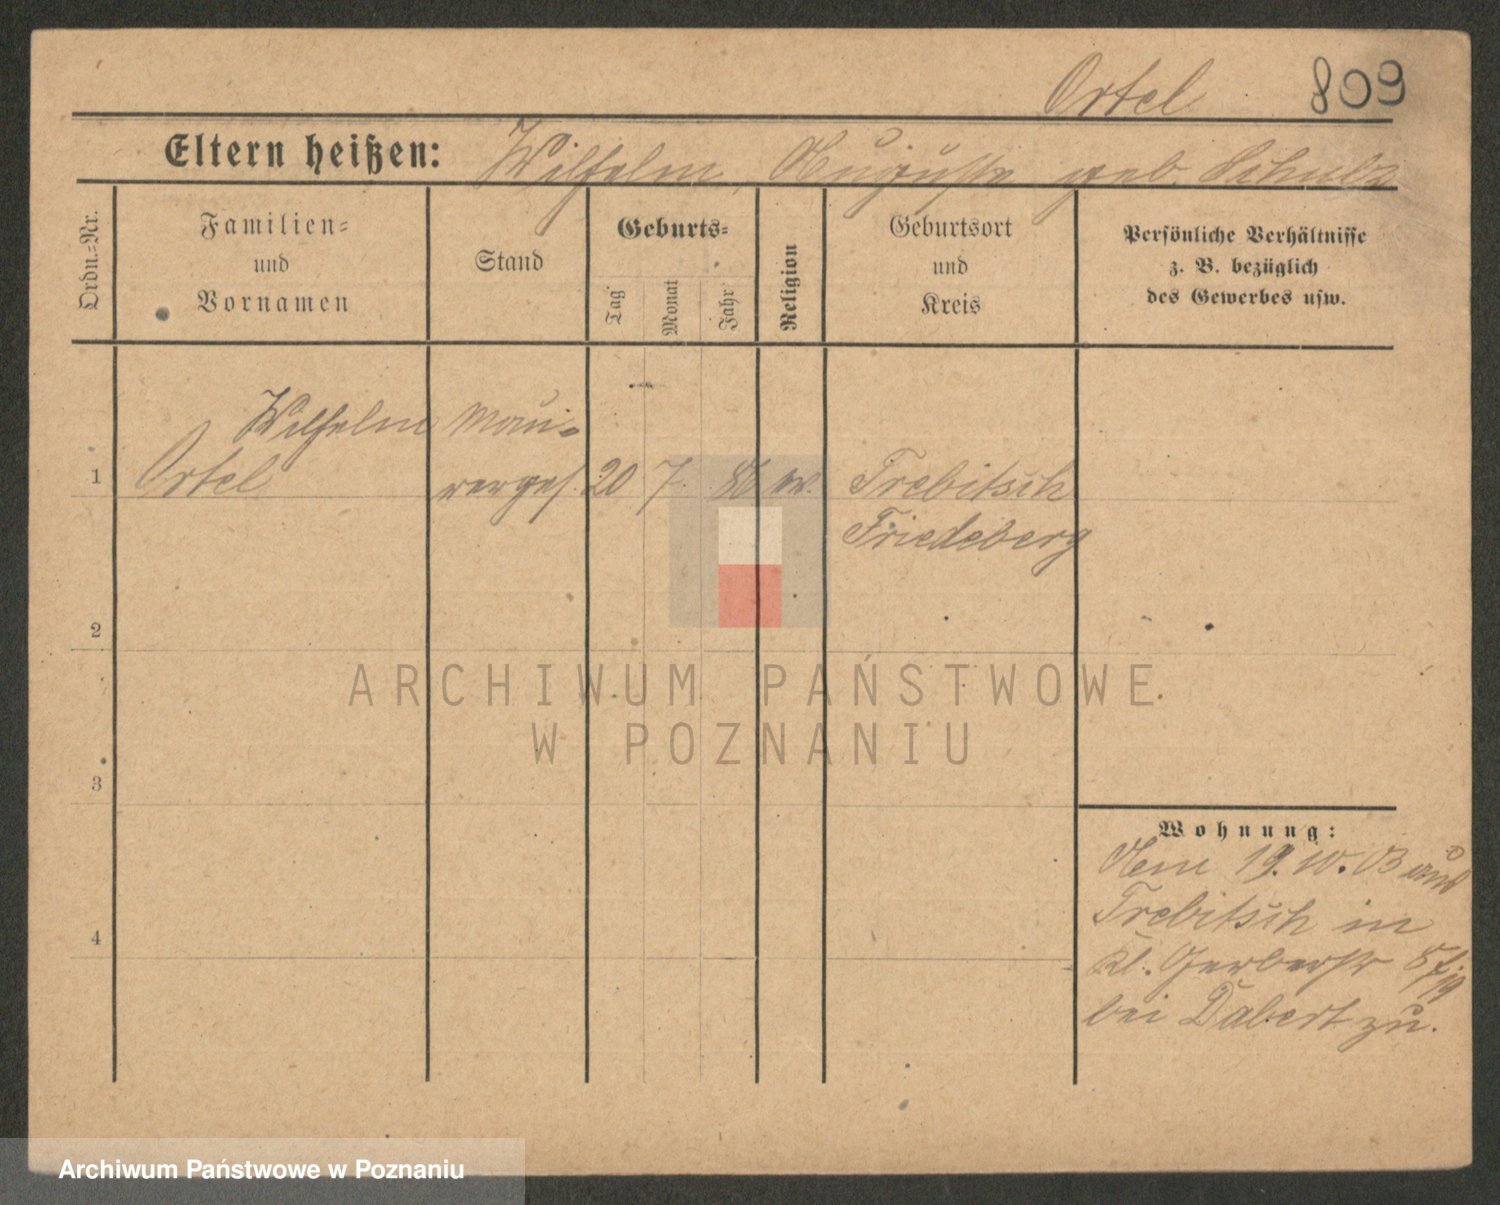 Ortel 809
Eltern heißen: Wilhelm, Auguste geb. Schulz
Ordn.-Nr.
Familien-
und
Vornamen
Stand
Geburts-
Tag
Monat
Jahr
Religion
Geburtsort
und
Kreis
Persönliche Verhältnisse
z. B. bezüglich
des Gewerbes usw.
Wilhelm Mau-
1 Ortel rerges. 20 7. 86 ev. Trebitsch
Friedeberg
2
3
4
Wohnung:
Am 19. 10. 03 aus
Trebitsch in
Kl. Gerberstr
bei Dabert zu.
ARCHIWUM PAŃSTWOWE
W POZNANIU
Archiwum Państwowe w Poznaniu